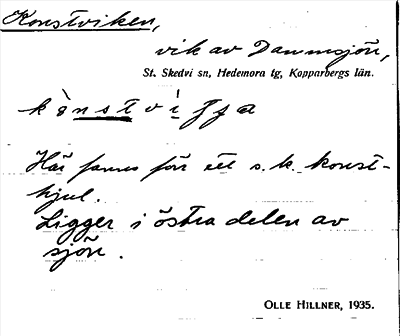 Konstviken,
vik av Dammsjön,
St. Skedvi sn, Hedemora tg, Kopparbergs län.
Här fanns förr ett s.k. konst-
hjul.
Ligger i östra delen av
sjön.
OLLE HILLNER, 1935.